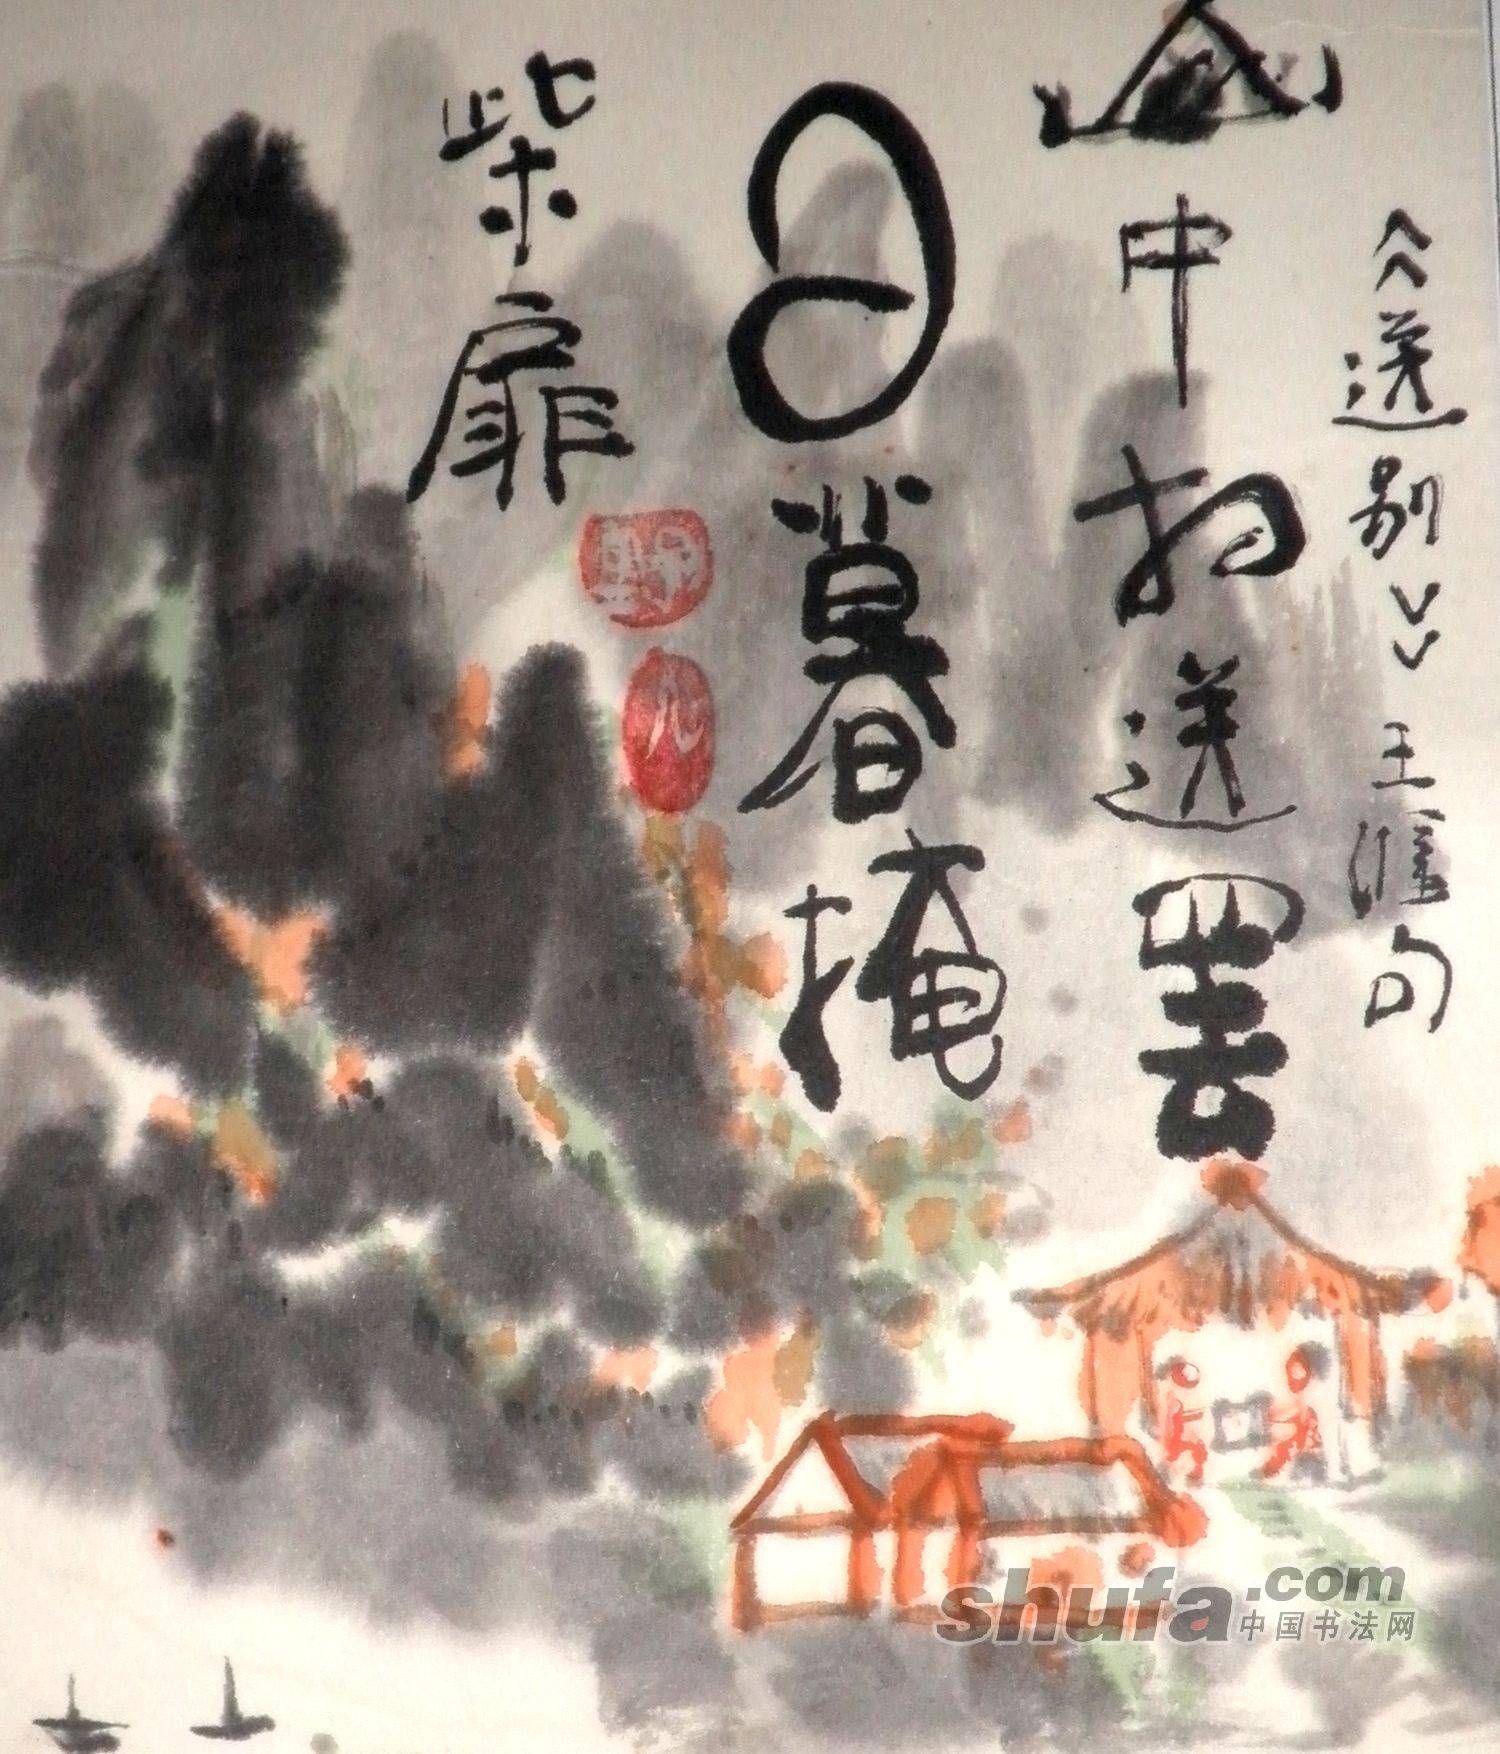 《送别》王维句
山中相送罢
日暮掩
柴扉
shufa.com
中国书法网